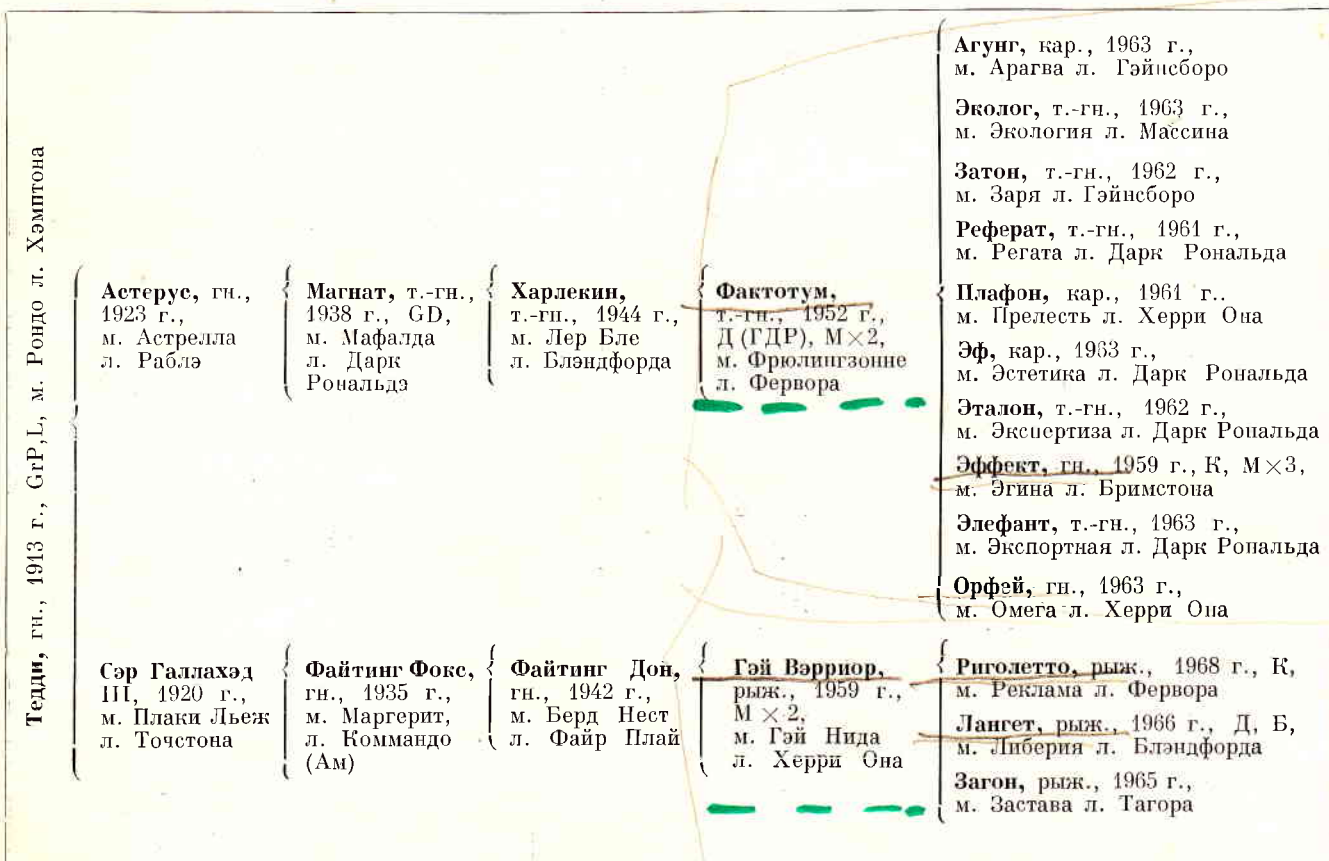 Тедди, гн., 1913 г., GrP,L, м. Рондо л. Хэмптона
Астерус, гн.,
1923 г.,
м. Астрелла
л. Раблэ
Магнат, т.-гн.,
1938 г., GD,
м. Мафалда
л. Дарк
Рональдэ
Харлекин,
т.-гн., 1944 г.,
м. Лер Бле
л. Блэндфорда
Фактотум,
т.-гн., 1952 г.,
Д (ГДР), М×2,
м. Фрюлингзонне
л. Фервора
Агунг, кар., 1963 г.,
м. Арагва л. Гэйнсборо
Эколог, т.-гн., 1963 г.,
м. Экология л. Массина
Затон, т.-гн., 1962 г.,
м. Заря л. Гэйнсборо
Реферат, т.-гн., 1961 г.,
м. Регата л. Дарк Рональда
Плафон, кар., 1961 г..
м. Прелесть л. Херри Она
Эф, кар., 1963 г.,
м. Эстетика л. Дарк Рональда
Эталон, т.-гн., 1962 г.,
м. Экспертиза л. Дарк Рональда
Эффект, гн., 1959 г., К, М×3,
м. Эгина л. Бримстона
Элефант, т.-гн., 1963 г.,
м. Экспортная л. Дарк Рональда
Орфей, гн., 1963 г.,
м. Омега л. Херри Она
Сэр Галлахэд
III, 1920 г.,
м. Плаки Льеж
л. Точстона
Файтинг Фокс,
гн., 1935 г.,
м. Маргерит,
л. Коммандо
(Ам)
Файтинг Дон,
гн., 1942 г.,
м. Берд Нест
л. Файр Плай
Гэй Вэрриор,
рыж., 1959 г.,
М × 2,
м. Гэй Нида
л. Херри Она
Риголетто, рыж., 1968 г., К,
м. Реклама л. Фервора
Лангет, рыж., 1966 г., Д, Б,
м. Либерия л. Блэндфорда
Загон, рыж., 1965 г.,
м. Застава л. Тагора